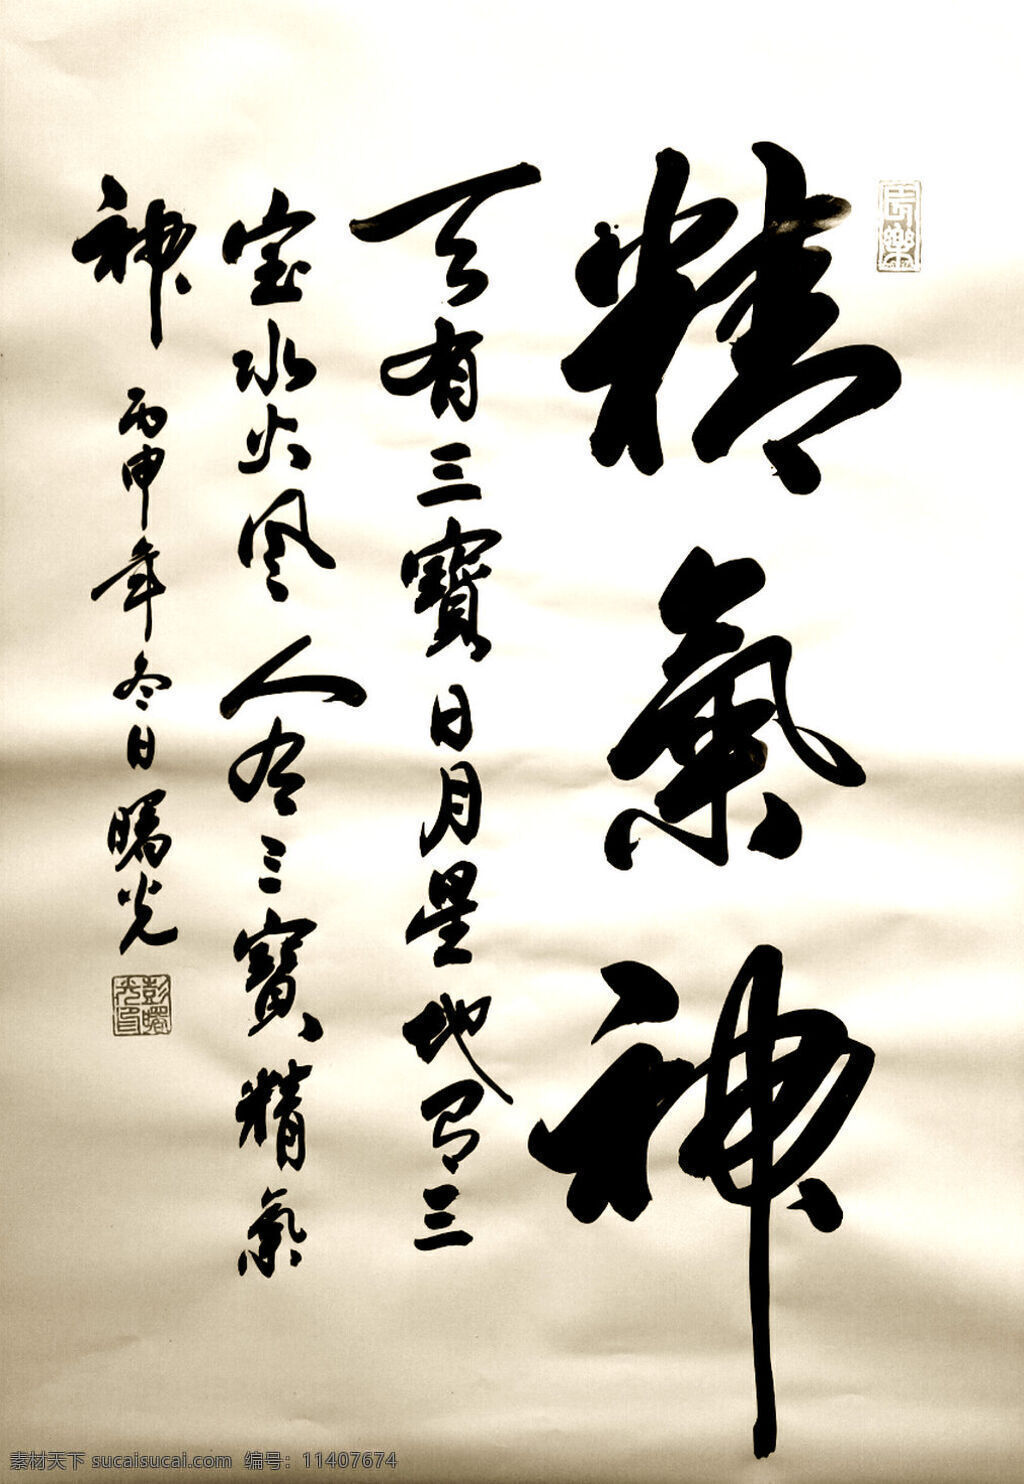 精氣神
天有三寶日月星地有三
宝水火风人有三寶精氣
神 丙申年冬日曙光
長樂
彭曙光印
素材天下 sucaisucai.com 编号：11407674